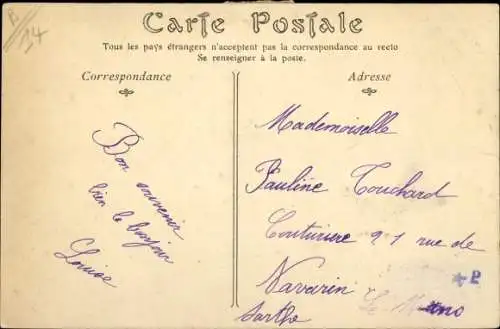 Carte Postale
Tous les pays étrangers n'acceptent pas la correspondance au recto
Se renseigner à la poste.
Correspondance
Adresse
P
14
Bon souvenir
bien le bonjour
Louise
Mademoiselle
Pauline Touchard
Couturière 91 rue de
Navarin Le Mans
Sarthe
P